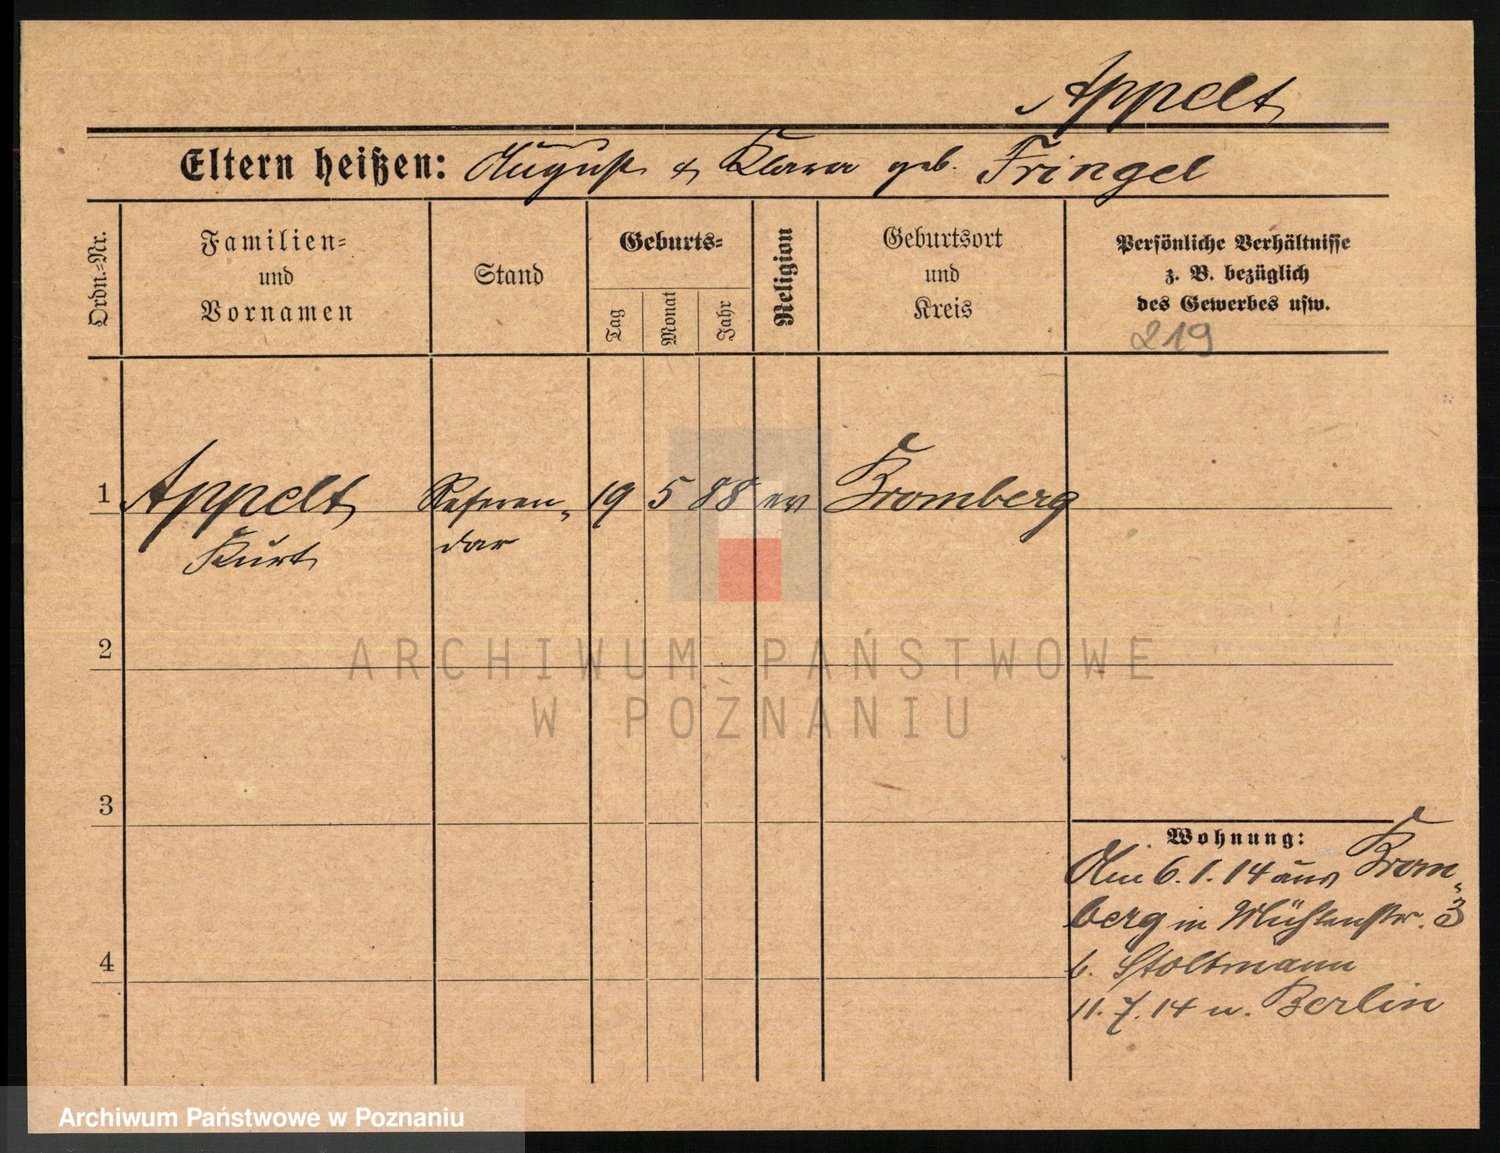 Appelt
Eltern heißen: August & Klara geb. Fringel
Ordn.-Nr.
Familien-
und
Vornamen
Stand
Geburts-
Tag
Monat
Jahr
Religion
Geburtsort
und
Kreis
Persönliche Verhältnisse
z. B. bezüglich
des Gewerbes usw.
219
1 Appelt Referen- 19 5 88 ev Bromberg
Kurt dar
2
ARCHIWUM PAŃSTWOWE
W POZNANIU
3
Wohnung:
Am 6.1.14 aus Brom-
berg in Mühlenstr. 3
b. Stoltmann
4
11.7.14 n. Berlin
Archiwum Państwowe w Poznaniu